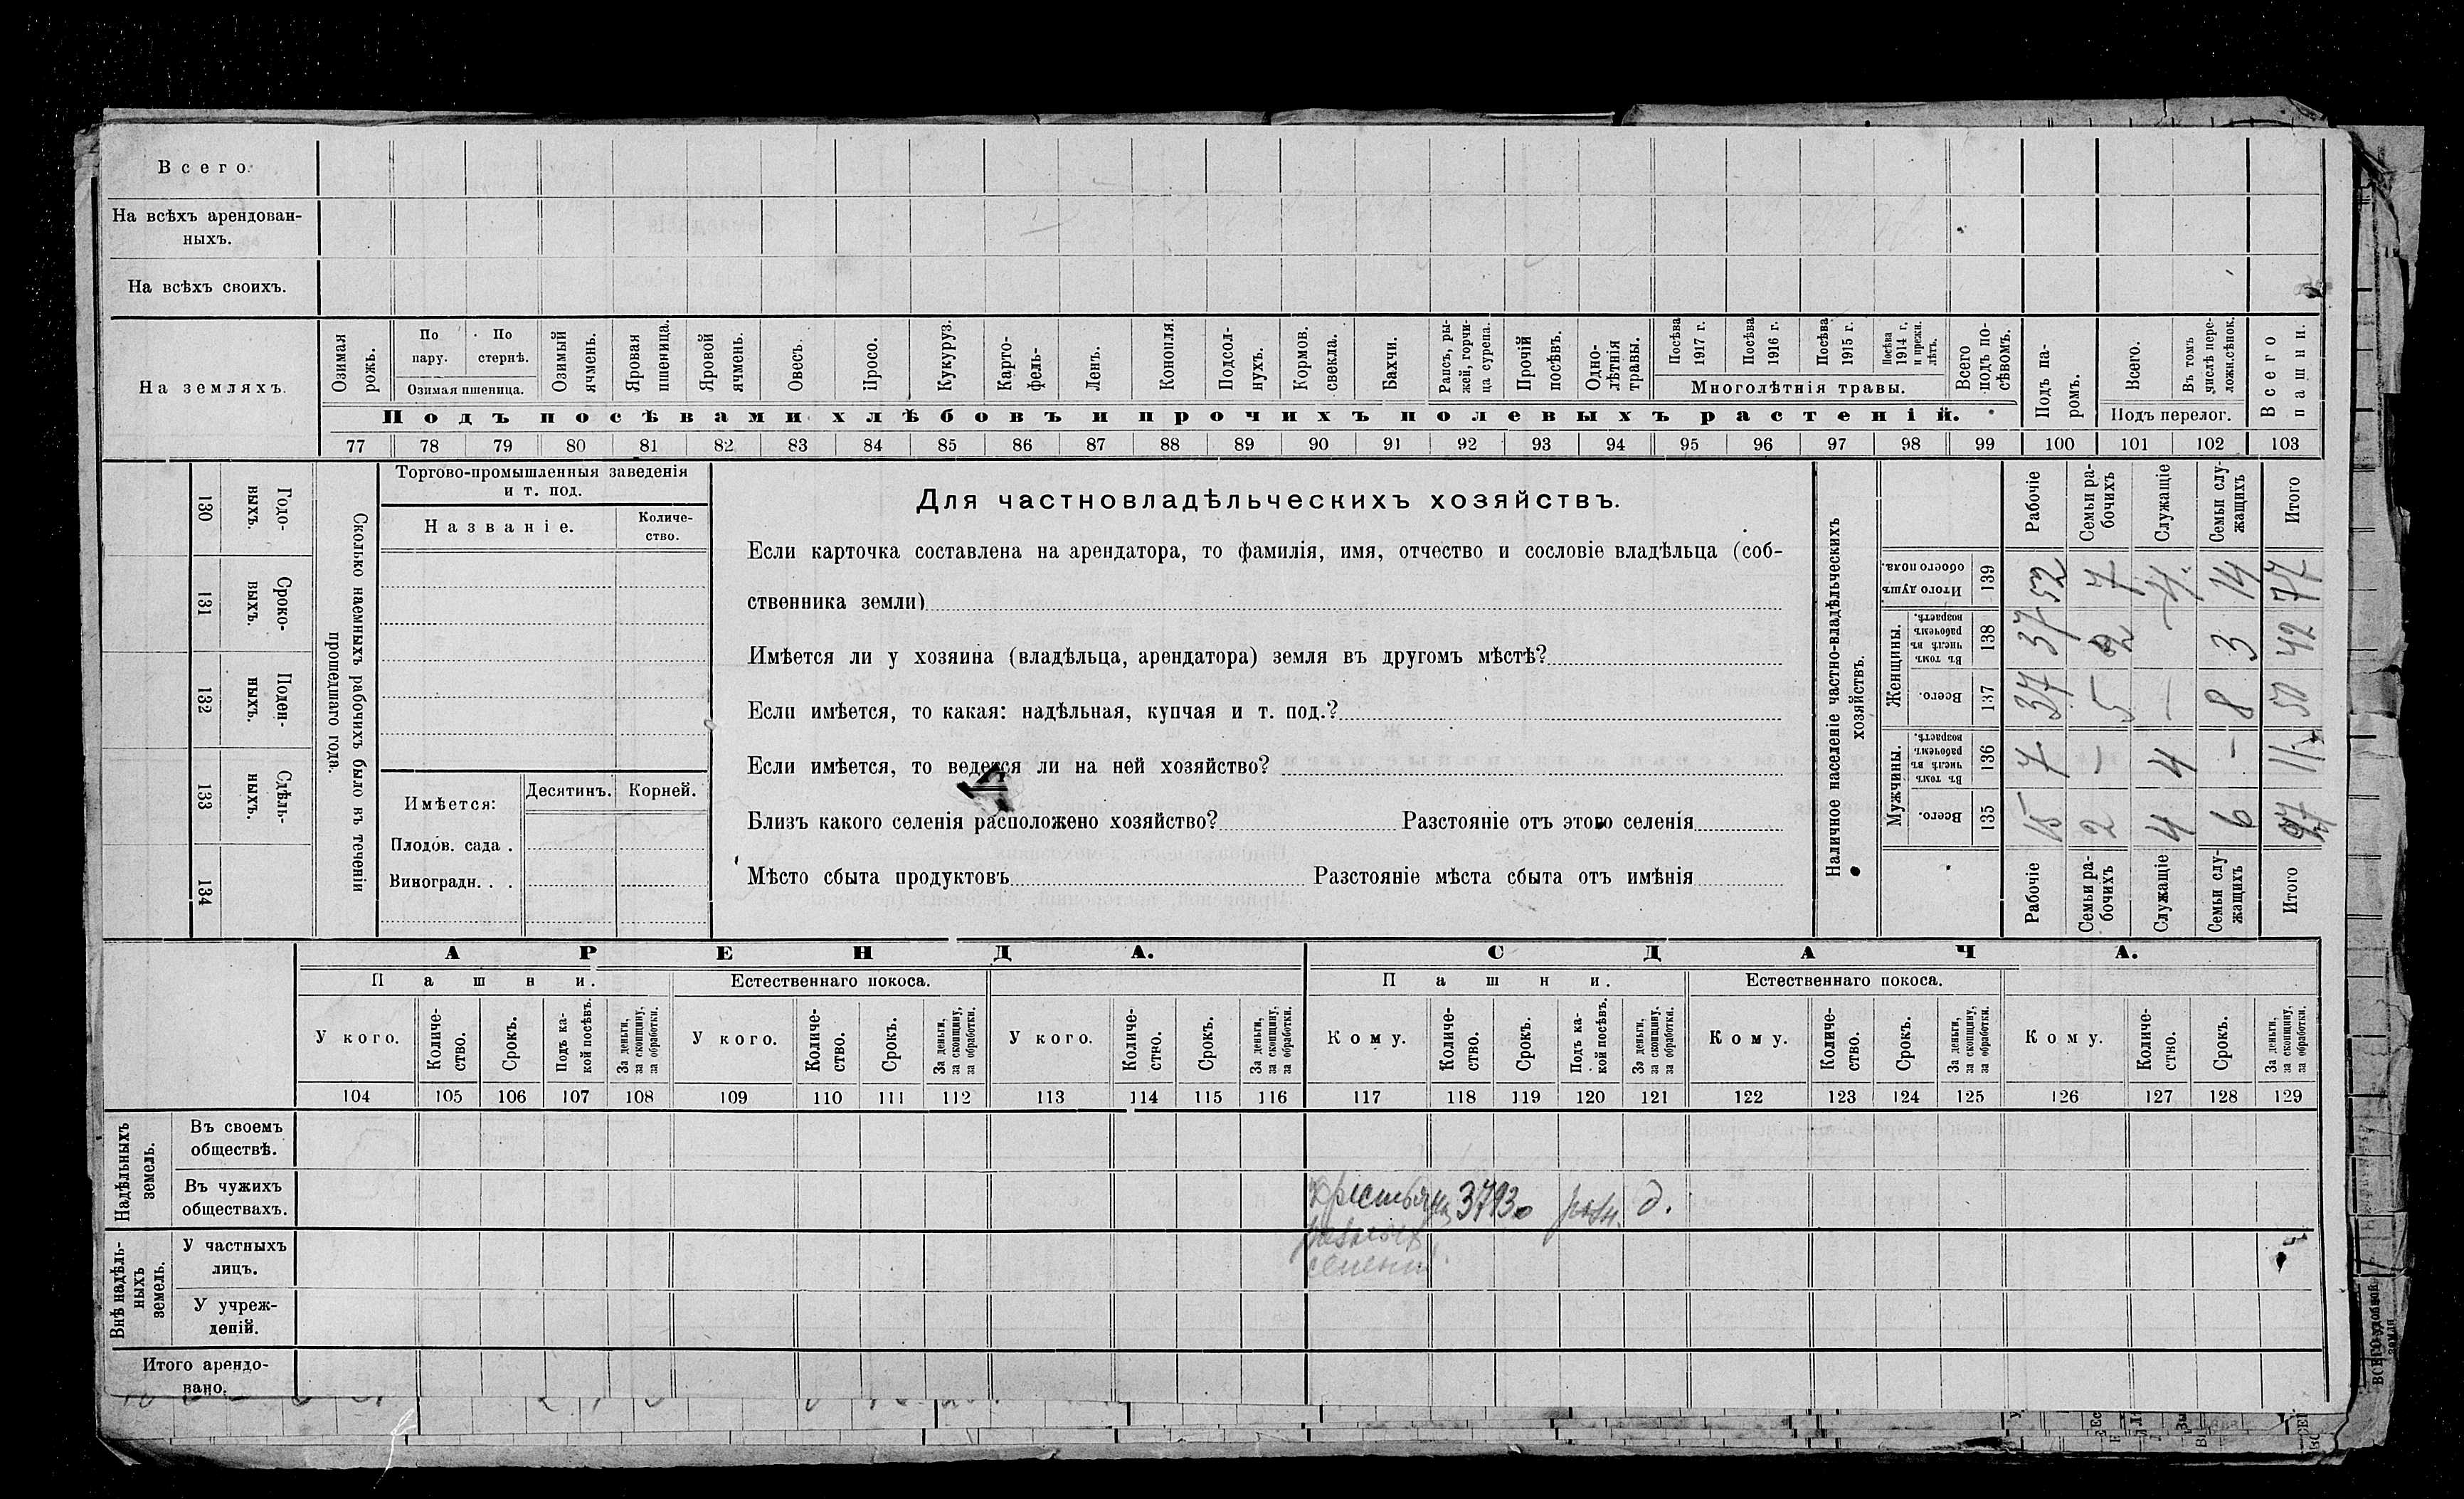 Всего.
На всѣхъ арендован-
ныхъ.
На всѣхъ своихъ.
На земляхъ.
Озимая рожь.
По пару.
По стернѣ.
Озимая пшеница.
Озимый ячмень.
Яровая пшеница.
Яровой ячмень.
Овесъ.
Просо.
Кукуруз.
Карто-
фель-
Ленъ.
Конопля.
Подсол-
нухъ.
Кормов.
свекла.
Бахчи.
Рапсъ, ры-
жей, горчи-
ца сурепа.
Прочій
посѣвъ.
Одно-
лѣтнія
травы.
Посѣва
1917 г.
Посѣва
1916 г.
Посѣва
1915 г.
Посѣва
1914 г.
и прежн.
лѣтъ.
Многолѣтнія травы.
Всего
подъ по-
сѣвомъ.
Подъ па-
ромъ.
Всего.
Въ томъ
числѣ пере-
ложн.сѣнок.
Подъ перелог.
Всего
пашни.
Подъ посѣвами хлѣбовъ и прочихъ полевыхъ растеній.
77 78 79 80 81 82 83 84 85 86 87 88 89 90 91 92 93 94 95 96 97 98 99 100 101 102 103
130 Годо-
ныхъ.
131 Сроко-
выхъ.
132 Поден-
ныхъ.
133 Сдѣль-
ныхъ.
134
Сколько наемныхъ рабочихъ было въ теченіи
прошедшаго года.
Торгово-промышленныя заведенія
и т. под.
Названіе.
Количе-
ство.
Имѣется:
Десятинъ.
Корней.
Плодов. сада .
Виноградн. . .
Для частновладѣльческихъ хозяйствъ.
Если карточка составлена на арендатора, то фамилія, имя, отчество и сословіе владѣльца (соб-
ственника земли)
Имѣется ли у хозяина (владѣльца, арендатора) земля въ другомъ мѣстѣ?
Если имѣется, то какая: надѣльная, купчая и т. под.?
Если имѣется, то ведется ли на ней хозяйство?
Близъ какого селенія расположено хозяйство? Разстояніе отъ этого селенія
Мѣсто сбыта продуктовъ Разстояніе мѣста сбыта отъ имѣнія
Наличное населеніе частно-владѣльческихъ
хозяйствъ.
Рабочіе
Семьи ра-
бочихъ
Служащіе
Семьи слу-
жащихъ
Итого
Итого душъ
обоего пола.
139
52 7 4. 14 77
Женщины.
Въ томъ
числѣ въ
рабочемъ
возрастѣ.
138
37 2 - 3 42
Всего.
137
37 5 - 8 50
Мужчины.
Въ томъ
числѣ въ
рабочемъ
возрастѣ.
136
7 - 4 - 11
Всего.
135
15 2 4 6
Рабочіе
Семьи ра-
бочихъ
Служащіе
Семьи слу-
жащихъ
Итого
АРЕНДА.
СДАЧА.
Пашни.
Естественнаго покоса.
Пашни.
Естественнаго покоса.
У кого.
Количе-
ство.
Срокъ.
Подъ ка-
кой посѣвъ.
За деньги,
за скопщину,
за обработки.
У кого.
Количе-
ство.
Срокъ.
За деньги,
за скопщину,
за обработки.
У кого.
Количе-
ство.
Срокъ.
За деньги,
за скопщину,
за обработки.
Кому.
Количе-
ство.
Срокъ.
Подъ ка-
кой посѣвъ.
За деньги,
за скопщину,
за обработки.
Кому.
Количе-
ство.
Срокъ.
За деньги,
за скопщину,
за обработки.
Кому.
Количе-
ство.
Срокъ.
За деньги,
за скопщину,
за обработки.
104 105 106 107 108 109 110 111 112 113 114 115 116 117 118 119 120 121 122 123 124 125 126 127 128 129
Надѣльныхъ
земель.
Въ своемъ
обществѣ.
Въ чужихъ
обществахъ.
д.
Внѣ надѣль-
ныхъ
земель.
У частныхъ
лицъ.
У учреж-
деній.
Итого арендо-
вано.